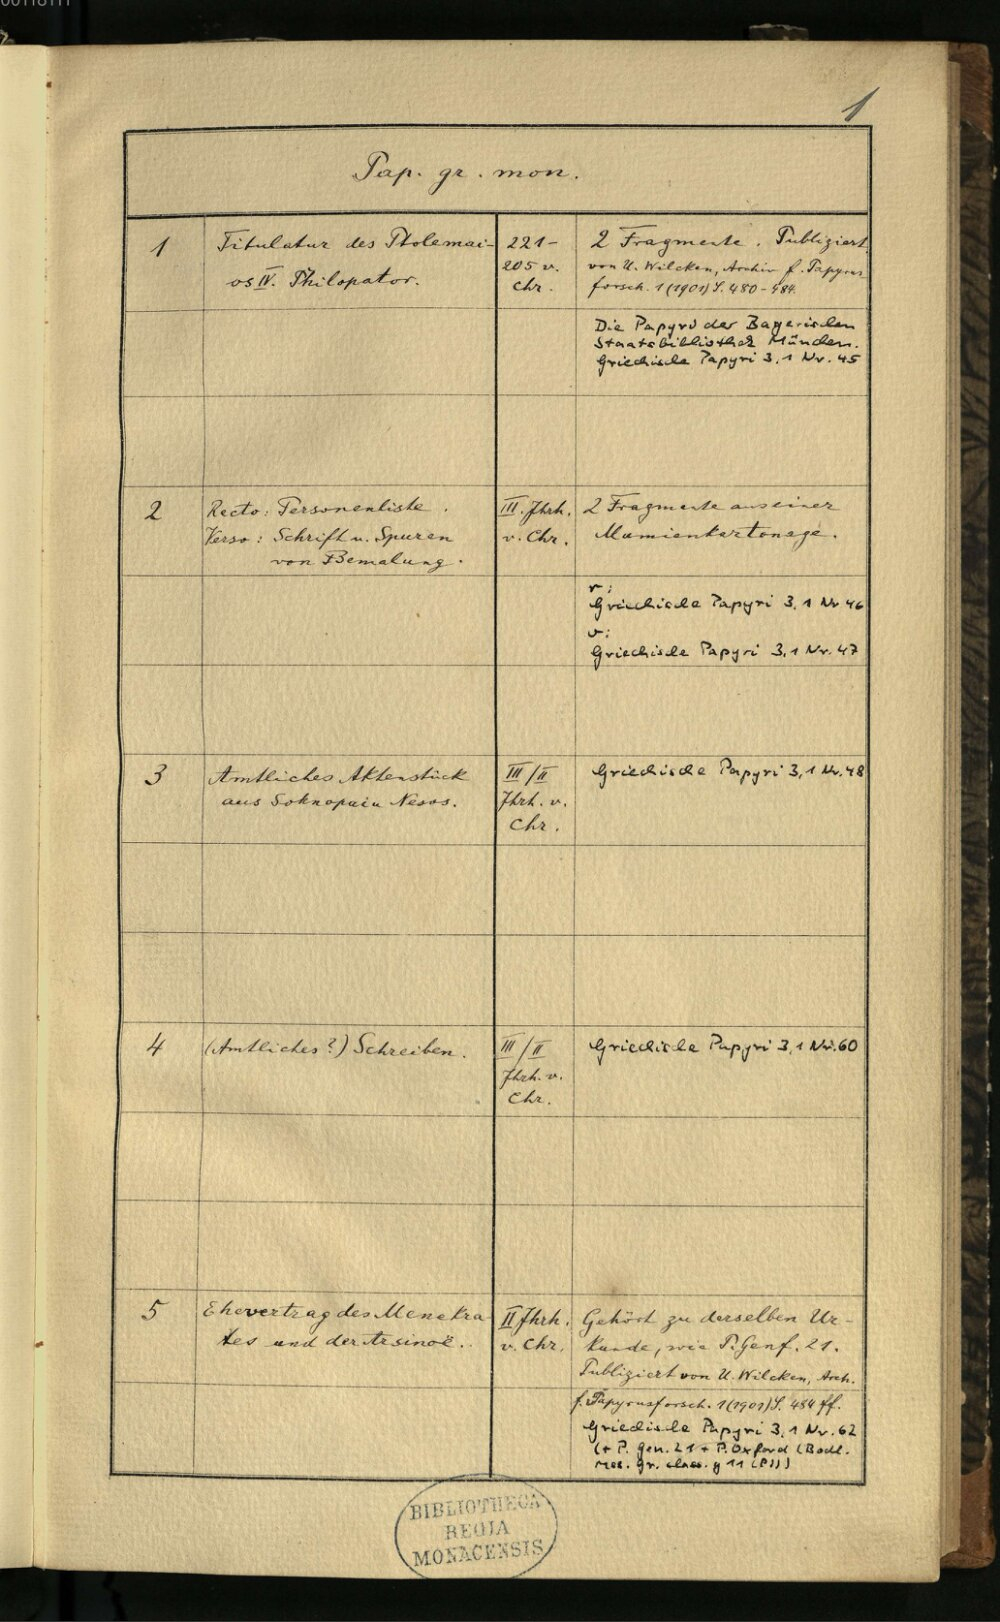 00118111
1
Pap. gr. mon.
1
Titulatur des Ptolemai-
os IV. Philopator.
221-
205 v.
Chr.
2 Fragmente. Publiziert
von U. Wilcken, Archiv f. Papyrus-
forsch. 1 (1901) S. 480-484.
Die Papyri der Bayerischen
Staatsbibliothek München.
Griechische Papyri 3,1 Nr. 45
2
Recto: Personenliste.
Verso: Schrift u. Spuren
von Bemalung.
III. Jhrh.
v. Chr.
2 Fragmente aus einer
Mumienkartonage.
r:
Griechische Papyri 3,1 Nr 46
v:
Griechische Papyri 3,1 Nr. 47
3
Amtliches Aktenstück
aus Soknopaiu Nesos.
III/II
Jhrh. v.
Chr.
Griechische Papyri 3,1 Nr. 48
4
(Amtliches?) Schreiben.
III/II
Jhrh. v.
Chr.
Griechische Papyri 3,1 Nr. 60
5
Ehevertrag des Menekra-
tes und der Arsinoë.
II Jhrh.
v. Chr.
Gehört zu derselben Ur-
kunde, wie P. Genf. 21.
Publiziert von U. Wilcken, Arch.
f. Papyrusforsch. 1 (1901) S. 484 ff.
Griechische Papyri 3,1 Nr. 62
(+ P. Gen. 21 + P. Oxford (Bodl.
Mss. gr. class. g 11 (P)))
BIBLIOTHECA
REGIA
MONACENSIS